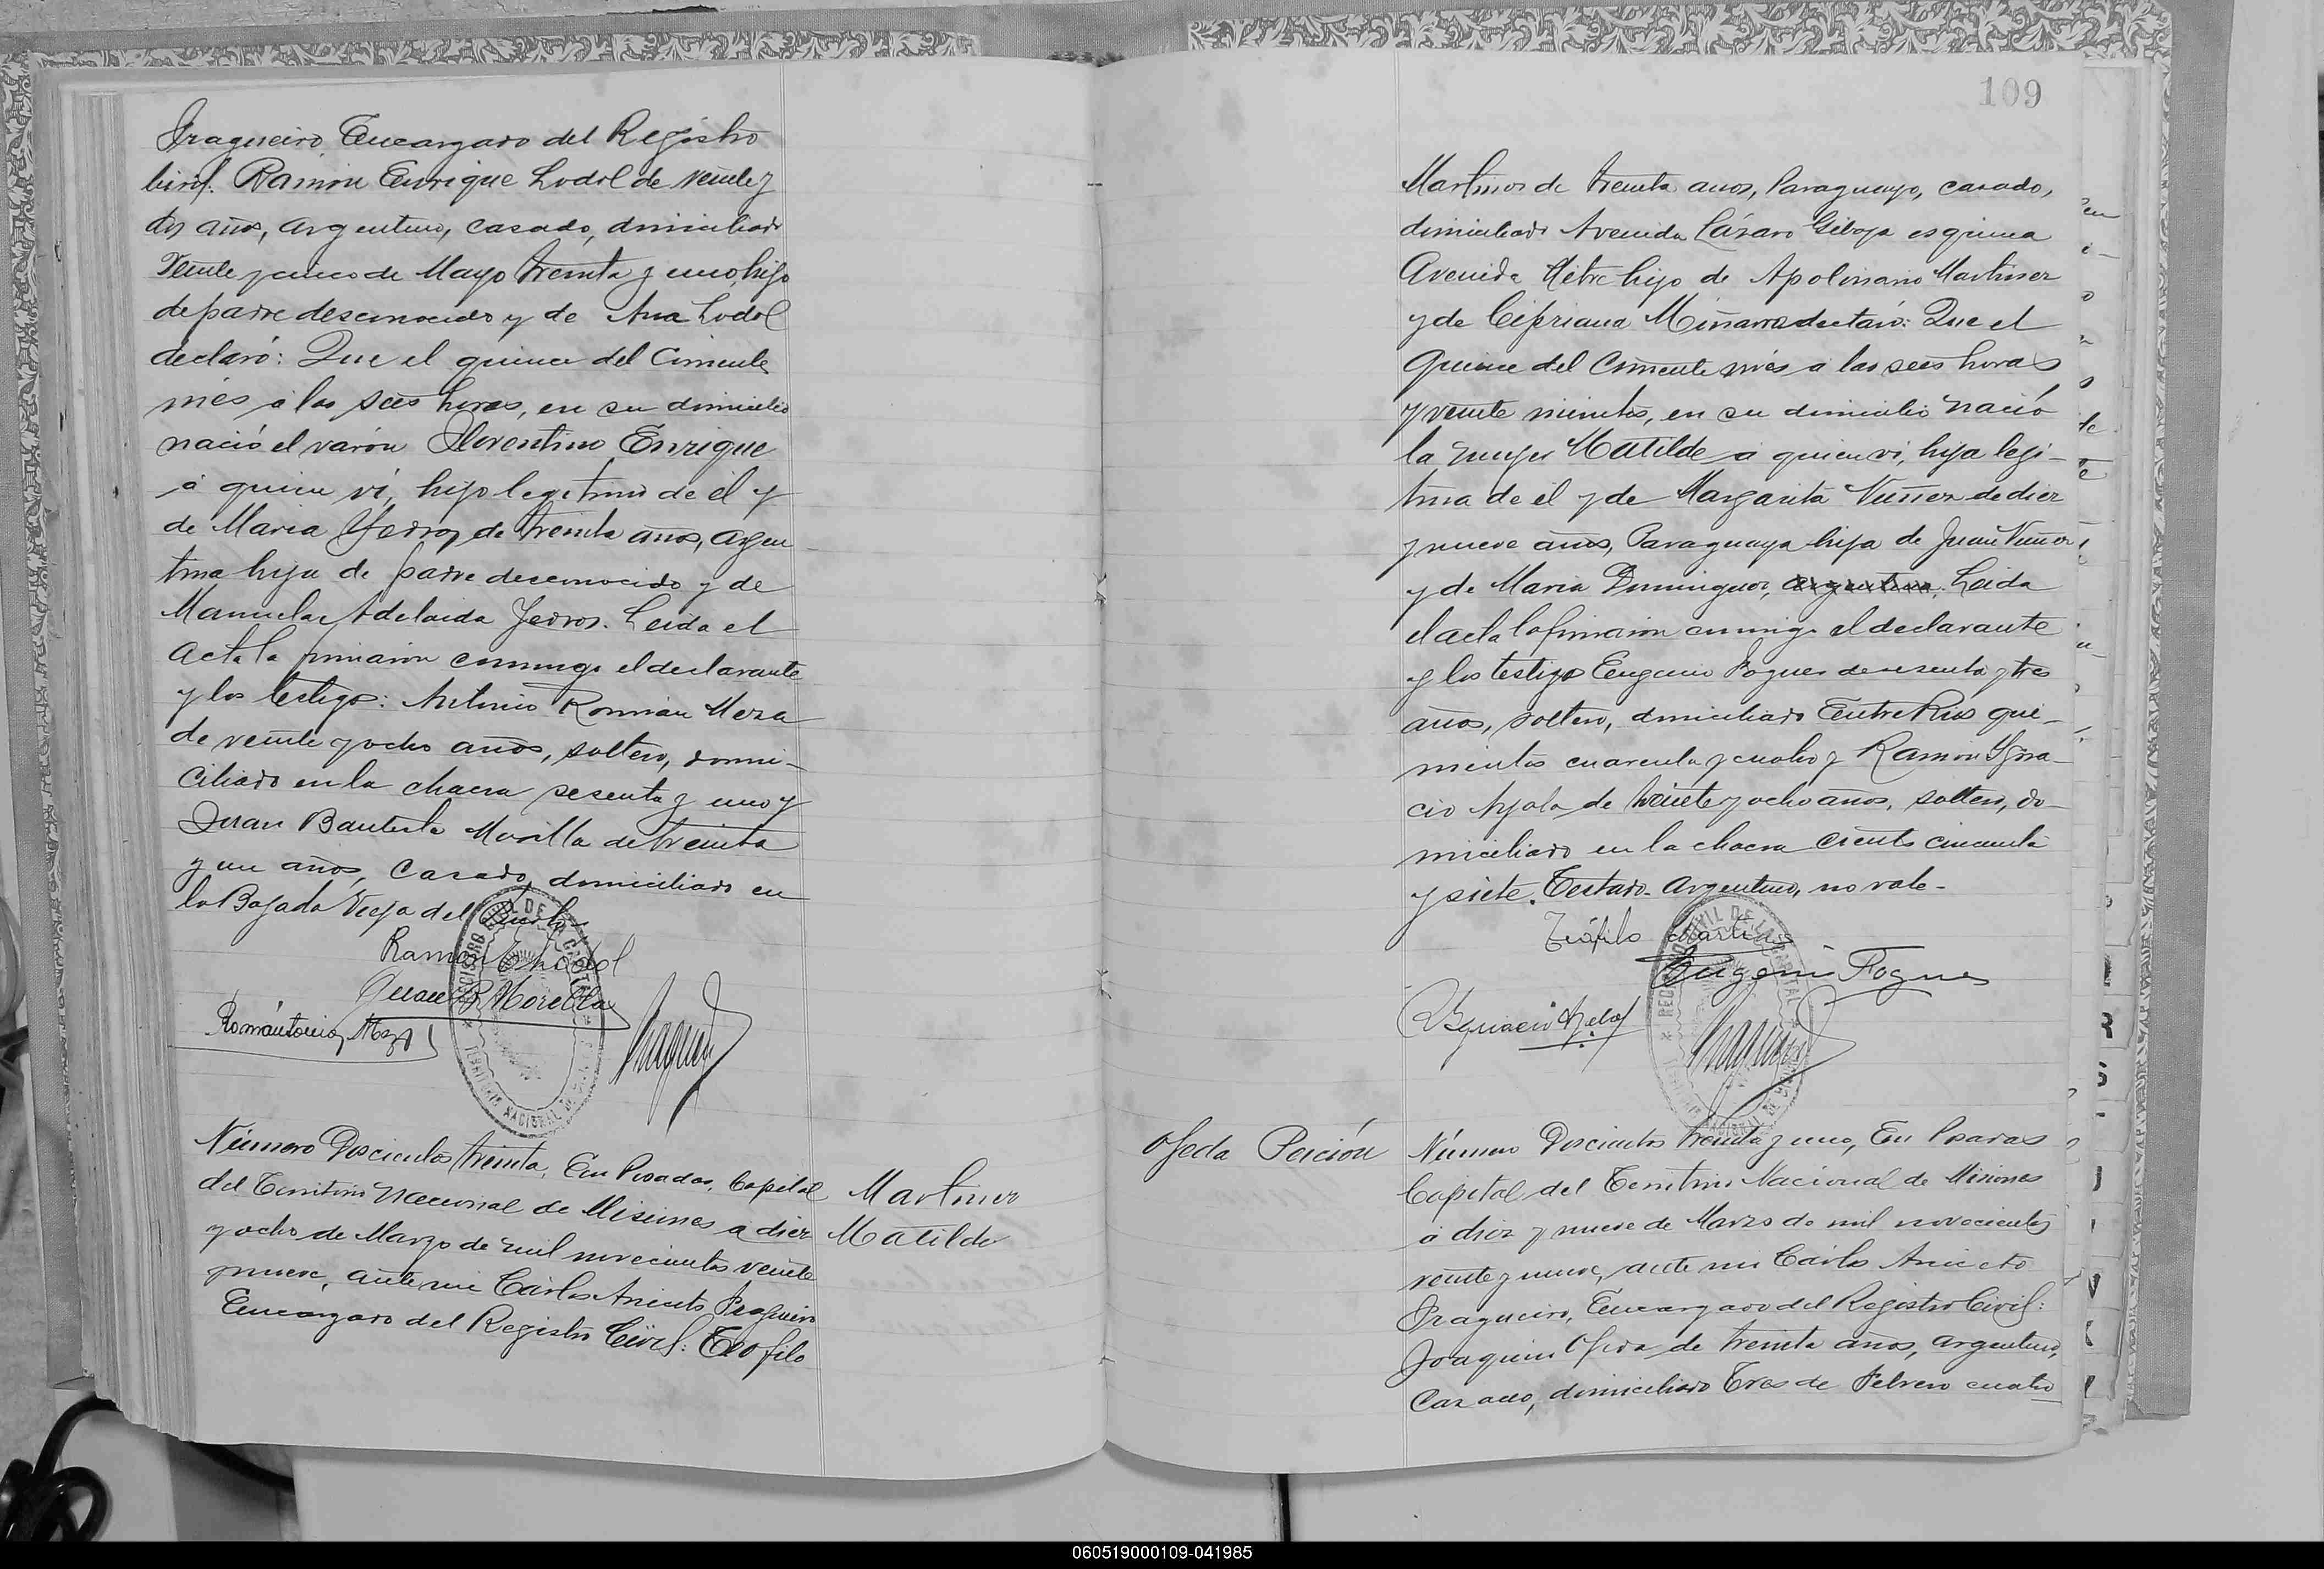 Fragueiro Encargado del Registro
Civil: Ramón Enrique Lodol de veinte y
dos años, argentino, casado, domiciliado
Veinte y cinco de Mayo treinta y uno, hijo
de padre desconocido y de Ana Lodol
declaró: Que el quince del corriente
més a las seis horas, en su domicilio
nació el varón Florentino Enrique
á quien ví, hijo legítimo de él y
de Maria Yedros, de treinta años, argen
tina hija de padre desconocido y de
Manuela Adelaida Yedros. Leida el
acta la firmaron conmigo el declarante
y los testigos: Antonio Román Meza
de veinte y ocho años, soltero, domi-
ciliado en la chacra sesenta y uno y
Juan Bautista Morilla de treinta
y un años, casado, domiciliado en
la Bajada Vieja del Puerto
Ramón E. Lodol
Juan B. Morilla
Román Antonio Meza
Fragueiro
REGISTRO CIVIL DE LA CAPITAL
TERRITORIO NACIONAL DE MISIONES
Número Doscientos treinta, En Posadas, Capital
del Territorio Nacional de Misiones a diez
y ocho de Marzo de mil novecientos veinte
y nueve, ante mi Cárlos Aniceto Fragueiro
Encargado del Registro Civil: Teofilo
Martinez
Matilde
109
Martinez de treinta años, Paraguayo, casado,
domiciliado Avenida Lázaro Gibaja esquina
Avenida Mitre hijo de Apolinario Martinez
y de Cipriana Miñarro declaró: Que el
quince del corriente més a las seis horas
y veinte minutos, en su domicilio nació
la mujer Matilde a quien ví, hija legi-
tima de él y de Margarita Nuñez de diez
y nueve años, Paraguaya hija de Juan Nuñez
y de Maria Dominguez, argentina, Leida
el acta la firmaron conmigo el declarante
y los testigos Eugenio Fogues de sesenta y tres
años, soltero, domiciliado Entre Rios qui-
nientos cuarenta y cuatro y Ramón Ygna-
cio Ayala de veinte y ocho años, soltero, do-
miciliado en la chacra ciento cincuenta
y siete. Testado. Argentino, no vale-
Teófilo Martinez
Eugenio Fogues
R Ygnacio Ayala
Fragueiro
REGISTRO CIVIL DE LA CAPITAL
Ojeda Porción
Número Doscientos treinta y uno, En Posadas
Capital del Territorio Nacional de Misiones
á diez y nueve de Marzo de mil novecientos
veinte y nueve, ante mi Carlos Aniceto
Fragueiro, Encargado del Registro Civil:
Joaquin Ojeda de treinta años, argentino,
casado, domiciliado Tres de Febrero cuatro
060519000109-041985